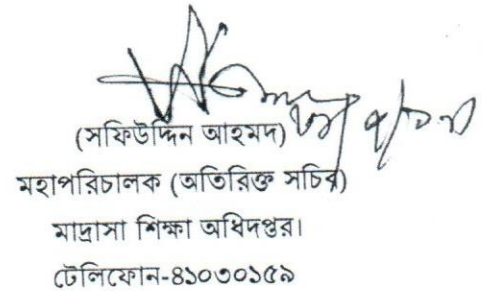 (সফিউদ্দিন আহমদ)
মহাপরিচালক (অতিরিক্ত সচিব)
মাদ্রাসা শিক্ষা অধিদপ্তর।
টেলিফোন-৪১০৩০১৫৯